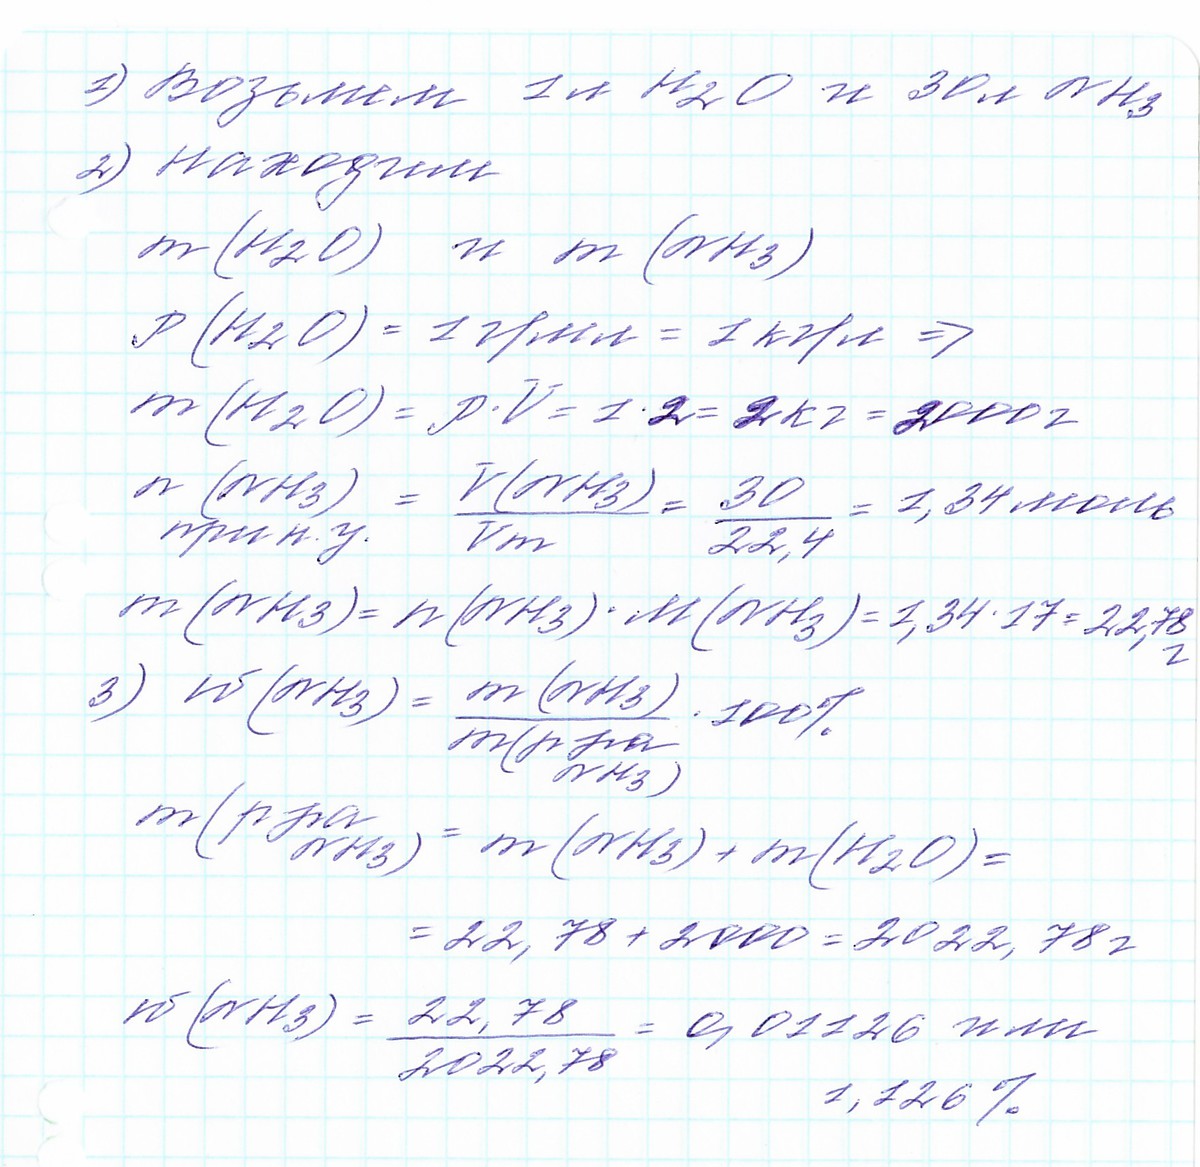 1) Возьмем 1л H2O и 30л NH3
2) Находим
m(H2O) и m(NH3)
ρ(H2O) = 1г/мл = 1кг/л =>
m(H2O) = ρ·V = 1·2 = 2кг = 2000г
n(NH3) при н.у. = V(NH3)/Vm = 30/22,4 = 1,34моль
m(NH3) = n(NH3)·M(NH3) = 1,34·17 = 22,78 г
3) w(NH3) = m(NH3)/m(р-ра NH3) · 100%
m(р-ра NH3) = m(NH3) + m(H2O) =
= 22,78 + 2000 = 2022,78г
w(NH3) = 22,78/2022,78 = 0,01126 или
1,126%